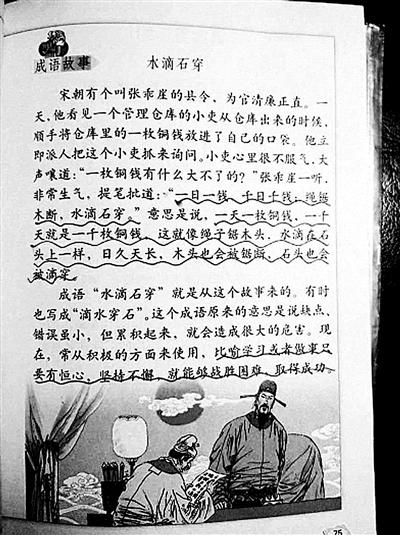 成语故事
水滴石穿
宋朝有个叫张乖崖的县令，为官清廉正直。一
天，他看见一个管理仓库的小吏从仓库出来的时候，
顺手将仓库里的一枚铜钱放进了自己的口袋。他立
即派人把这个小吏抓来询问。小吏心里很不服气，大
声嚷道：“一枚铜钱有什么大不了的？”张乖崖一听，
非常生气，提笔批道：“一日一钱，千日千钱，绳锯
木断，水滴石穿。”意思是说，一天一枚铜钱，一千
天就是一千枚铜钱，这就像绳子锯木头，水滴在石
头上一样，日久天长，木头也会被锯断，石头也会
被滴穿
成语“水滴石穿”就是从这个故事来的。有时
也写成“滴水穿石”。这个成语原来的意思是说缺点、
错误虽小，但累积起来，就会造成很大的危害。现
在，常从积极的方面来使用，比喻学习或者做事只
要有恒心，坚持不懈，就能够战胜困难，取得成功。
75